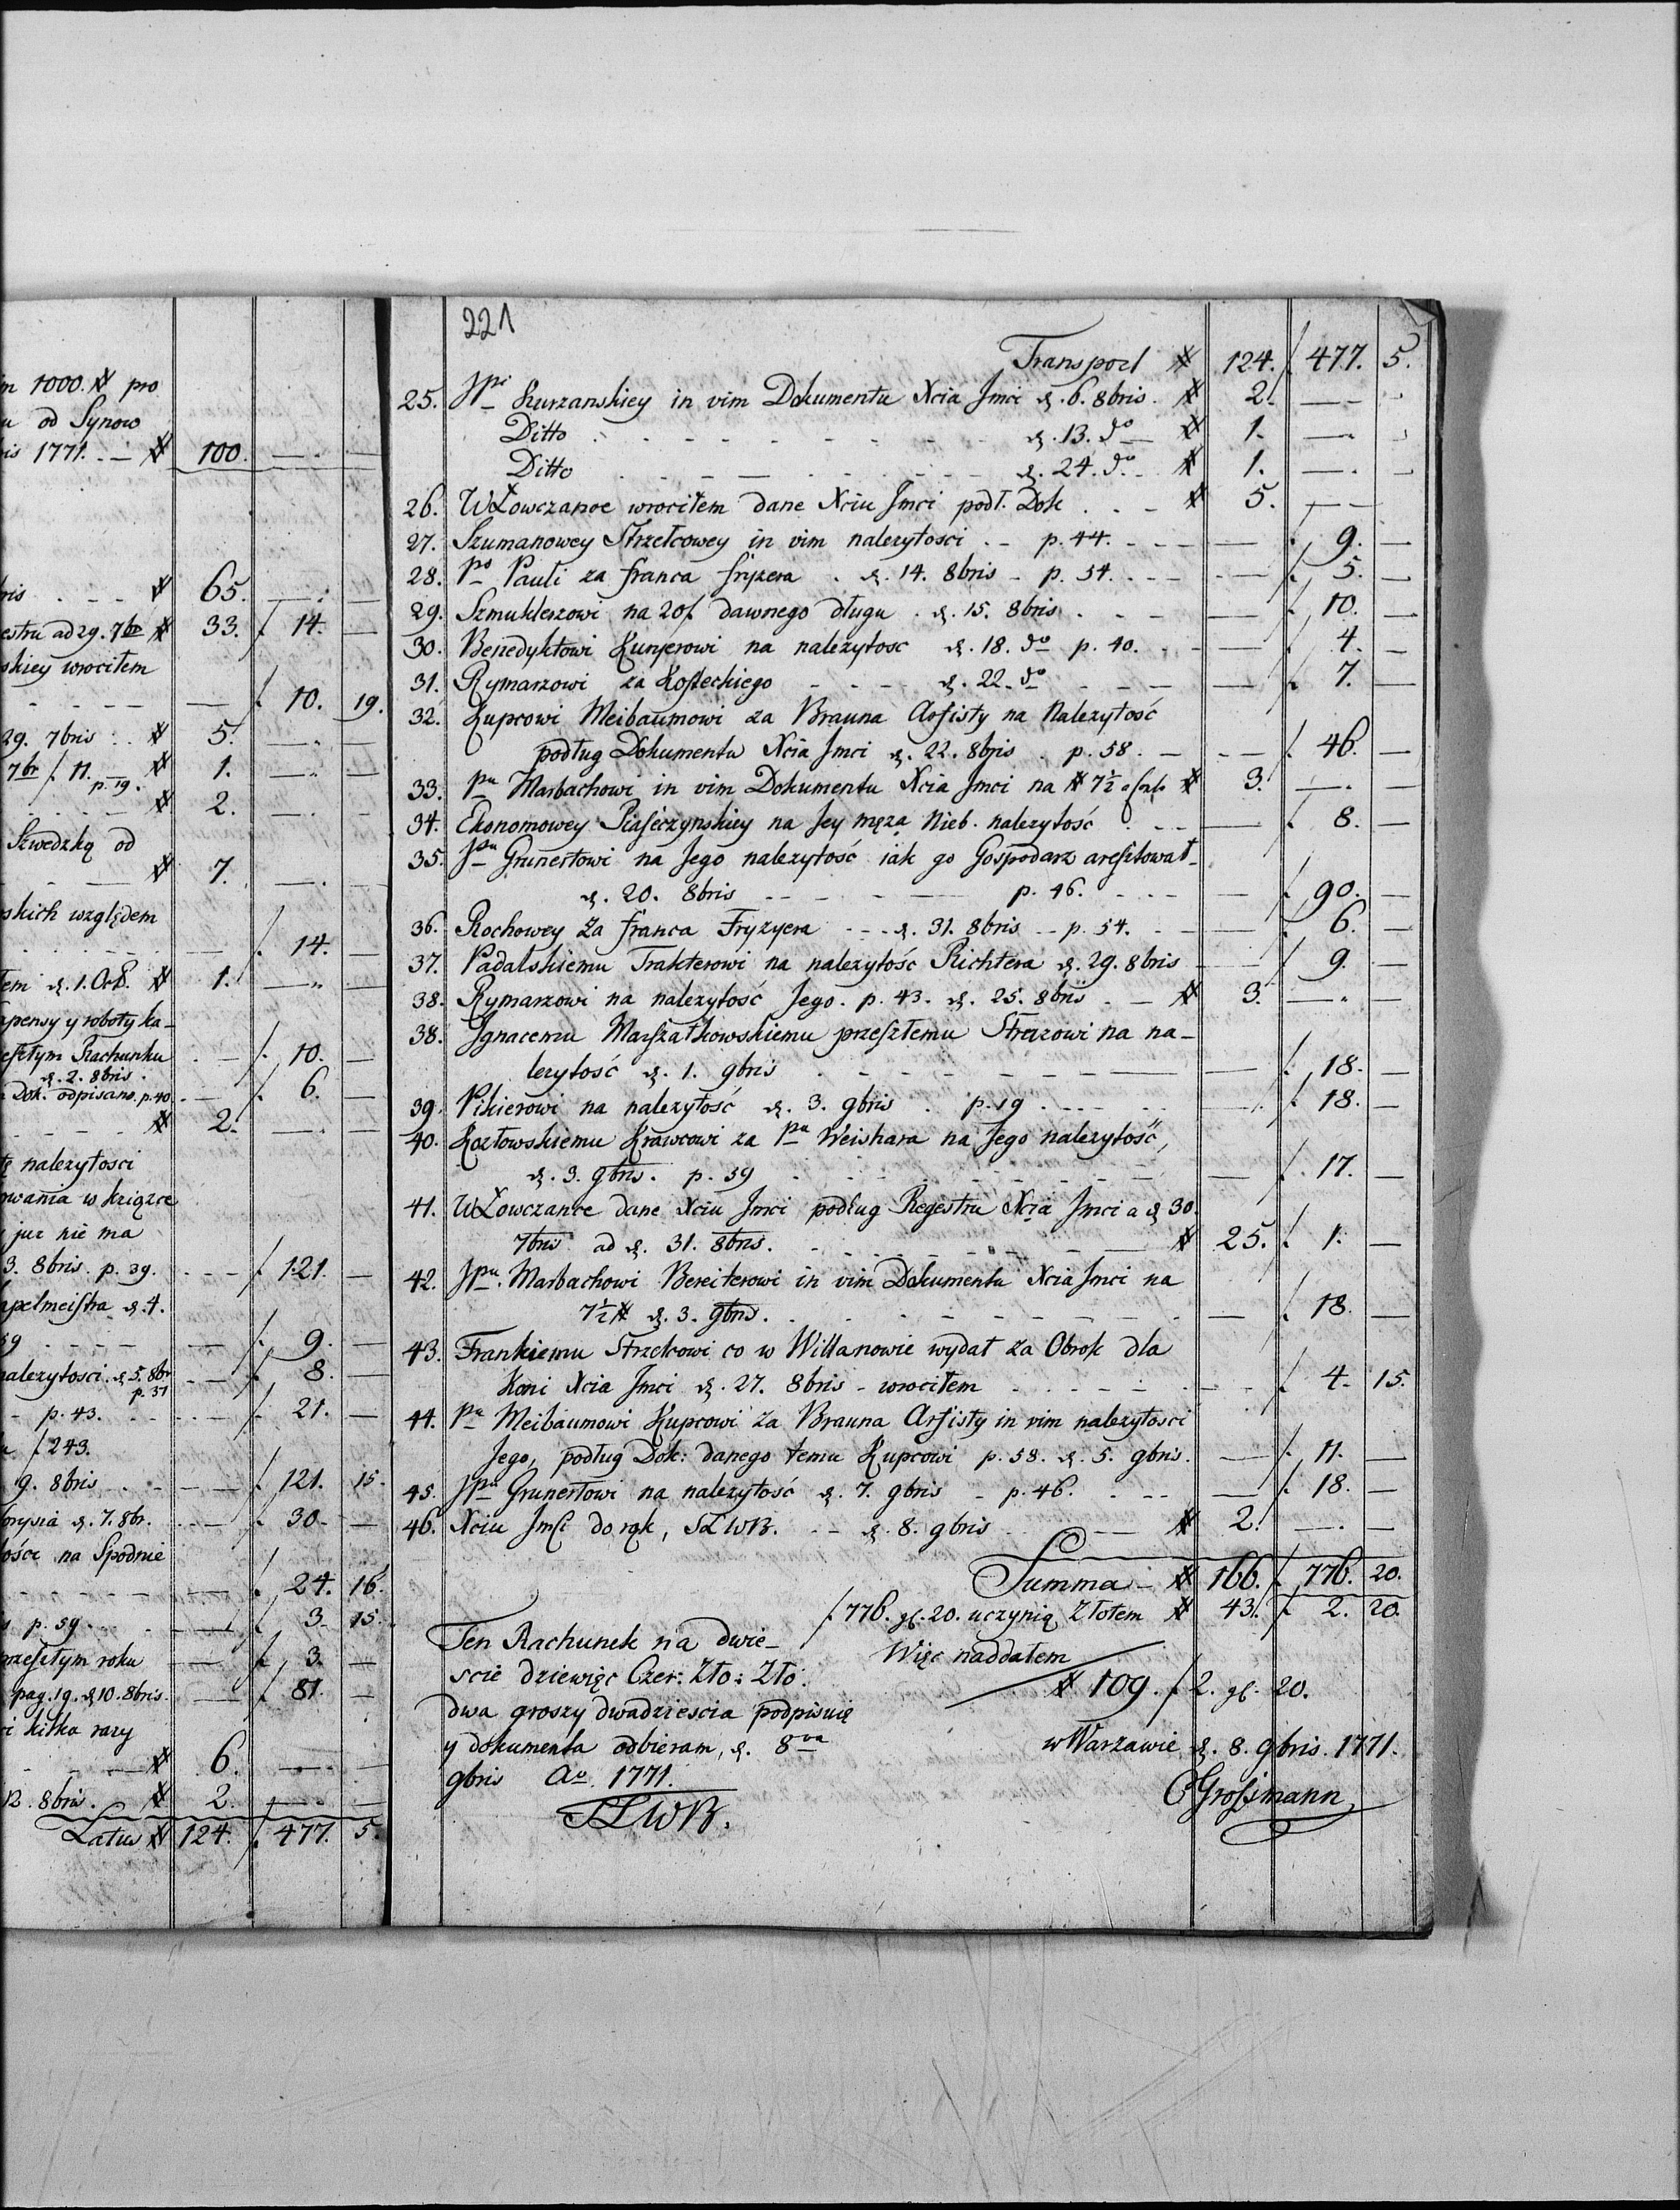 m 1000. # pro
u od Synow
is 1771. — # 100. — —
ris . . — # 65. — —
estru ad 29. 7br # 33. f. 14. —
skiey wrociłem
— f. 10. 19.
29. 7bris . . # 5. — —
7br f. 11. — # 1. — —
p. 19.
# 2. — —
Szwedzką od
# 7. — —
skich względem
— f. 14. —
łem d. 1. Octb. # 1. — —
xpensy y roboty ka-
eszłym Rachunku — f. 10. —
d. 2. 8bris.
Dok. odpisano. p. 40. — f. 6. —
# 2. — —
tę nalezytosci
owania w ksiązce
juz nie ma
3. 8bris. p. 39. — f. 121. —
apelmeistra d. 4.
59 — f. 9. —
nalezytosci. d. 5. 8br — f. 8. —
p. 37
p. 43. — f. 21. —
f 243.
9. 8bris — f. 121. 15.
d. 7. 8br. — f. 30. —
ości na Spodnie
— f. 24. 16.
p. 59. — f. 3. 15.
przeszłym roku — f. 3. —
pag. 19. d. 10. 8bris. — f. 81. —
i kilka razy
# 6. — —
12. 8bris. # 2. — —
Latus # 124. f. 477. 5.
221
Transport # 124. f. 477. 5.
25. JPi Kurzanskiey in vim Dokumentu Xcia Jmci d. 6. 8bris. # 2. — —
Ditto . . . d. 13. do # 1. — —
Ditto . . . d. 24. do # 1. — —
26. WŁowczance wrociłem dane Xciu Jmci podł. Dok . . — # 5. — —
27. Szumanowey Strzelcowey in vim nalezytosci . — p. 44. — — f. 9. —
28. Po Pauli za franca fryzera . d. 14. 8bris — p. 54. — — f. 5. —
29. Szmuklerzowi na 20 f. dawnego długu . d. 15. 8bris — f. 10. —
30. Benedyktowi Kunjerowi na nalezytosc d. 18. do p. 40. — f. 4. —
31. Rymarzowi za Kosteckiego — d. 22. do — f. 7. —
32. Kupcowi Meibaumowi za Brauna Arfisty na Nalezytość
podług Dokumentu Xcia Jmci d. 22. 8bris . p. 58. — f. 46. —
33. Pu Marbachowi in vim Dokumentu Xcia Jmci na # 7½ # 3. — —
34. Ekonomowey Piaseczynskiey na Jey męza Nieb. nalezytość — f. 8. —
35. JPu Grunertowi na Jego nalezytość iak go Gospodarz aresztował —
d. 20. 8bris — p. 46. — f. 90. —
36. Rochowey za franca Fryzyera — d. 31. 8bris — p. 54. — f. 6. —
37. Padalskiemu Trakterowi na nalezytość Richtera d. 29. 8bris — f. 9. —
38. Rymarzowi na nalezytość Jego. p. 43. d. 25. 8bris — # 3. — —
38. Jgnacemu Marszałkowskiemu przeszłemu Strozowi na na-
lezytość d. 1. 9bris — f. 18. —
39. Pikierowi na nalezytość d. 3. 9bris . p. 19 — f. 18. —
40. Kozłowskiemu Krawcowi za Pu Weishara na Jego nalezytość,
d. 3. 9bris. p. 59 — f. 17. —
41. WŁowczance dane Xciu Jmci podług Regestru Xcia Jmci a d. 30.
7bris ad d. 31. 8bris. # 25. f. 1. —
42. JPu. Marbachowi Bereiterowi in vim Dokumentu Xcia Jmci na
7½ # d. 3. 9bris. — f. 18. —
43. Frankiemu Strzelcowi co w Willanowie wydał za Obrok dla
Koni Xcia Jmci d. 27. 8bris — wrociłem — f. 4. 15.
44. Pu Meibaumowi Kupcowi za Brauna Arfisty in vim nalezytosci
Jego, podług Dok: danego temu Kupcowi p. 58. d. 5. 9bris. — f. 11. —
45. JPu Grunertowi na nalezytość d. 7. 9bris — p. 46. — f. 18. —
46. Xciu Jmci do rąk, SLWB. — d. 8. 9bris — # 2. — —
Summa — # 166. f. 776. 20.
f 776. gl. 20. uczynią Złotem # 43. f. 2. 20.
Więc naddałem
# 109. f 2. gl. 20.
Ten Rachunek na dwie-
scie dziewięc Czer: Zło: Zło:
dwa groszy dwadziescia podpisuię
y dokumenta odbieram, d. 8va
9bris Ao. 1771.
SLWB.
w Warzawie d. 8. 9bris. 1771.
CGrossmann